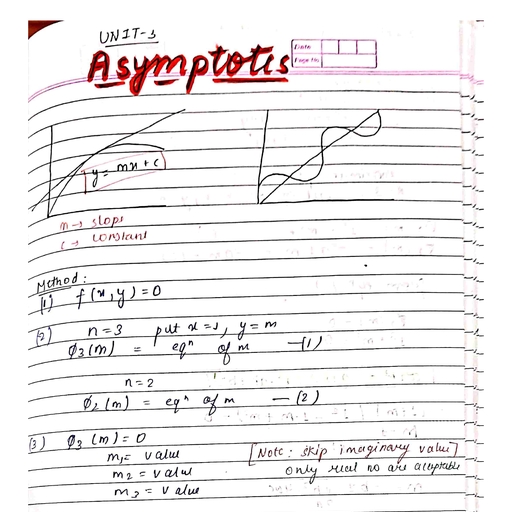 UNIT-1
Asymptotes
Date
Page No
y = mx + c
m → slope
c → constant
Method :
(1) f(x, y) = 0
(2) n = 3 put x = 1, y = m
Ø₃(m) = eqⁿ of m —(1)
n = 2
Ø₂(m) = eqⁿ of m —(2)
(3) Ø₃(m) = 0
m₁ = value
m₂ = value
m₃ = value
[Note : skip imaginary value]
only real no are acceptable